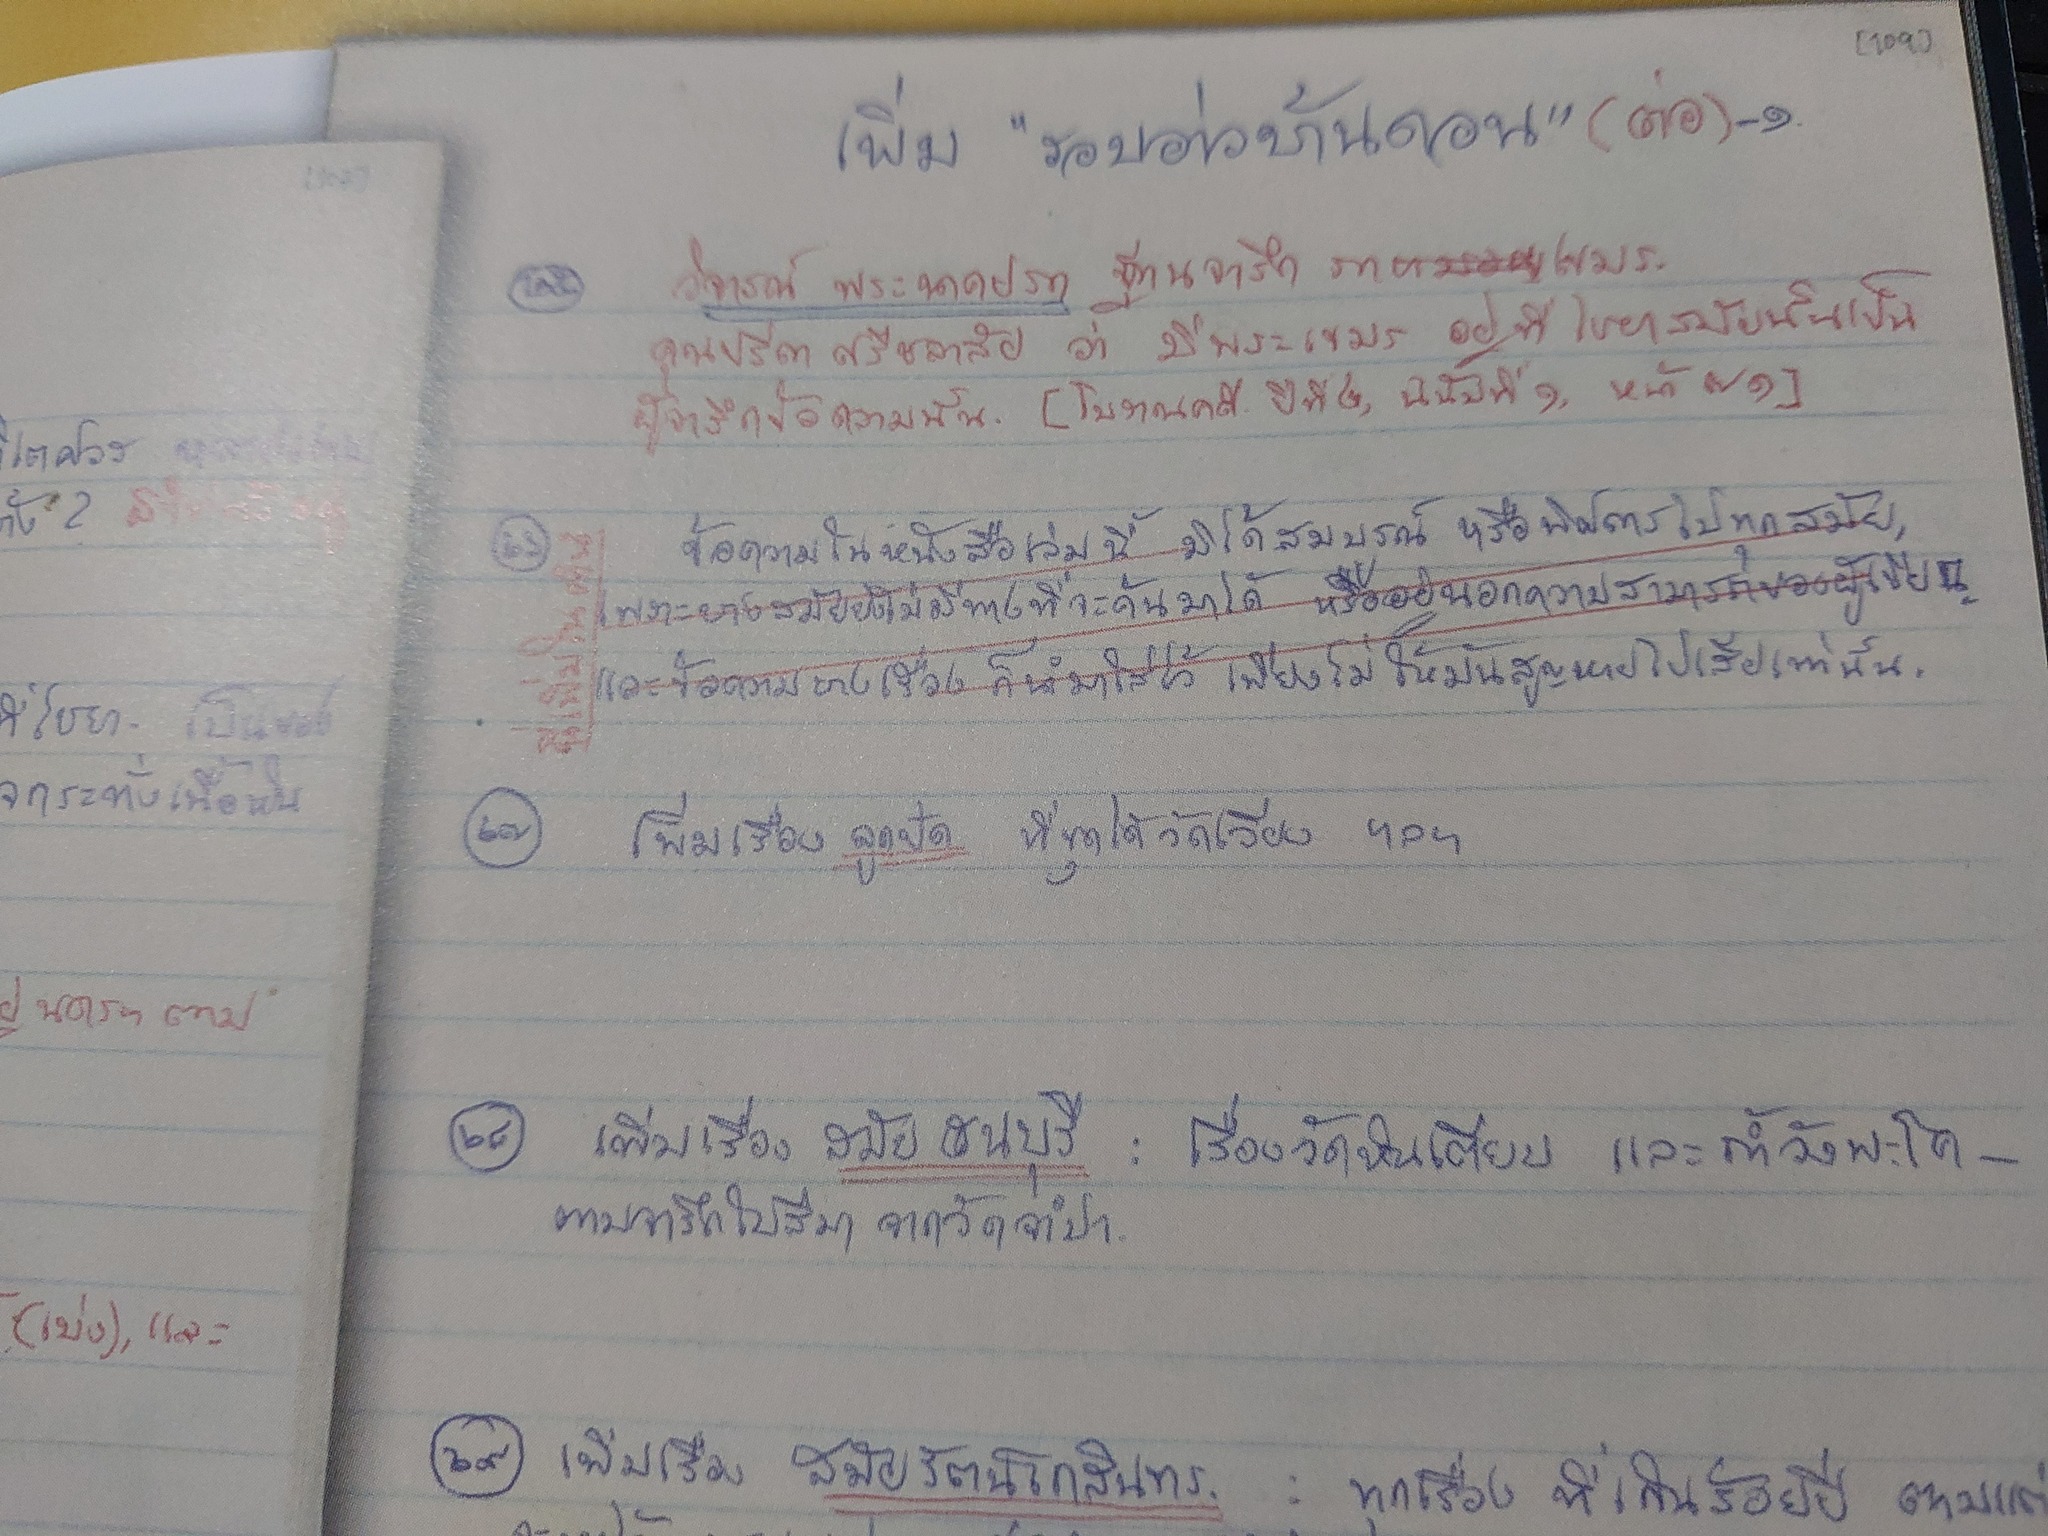 [109]
เพิ่ม "รอบอ่าวบ้านดอน" (ต่อ)-๑.
วิจารณ์ พระนาคปรก ฐานจารึก ขเมร.
คุณปรีดา ศรีชลาลัย ว่า มีพระเขมร อยู่ที่ไชยาสมัยนั้นเป็น
ผู้จารึกข้อความนั้น. [โบราณคดี. ปีที่ ๒, ฉบับที่ ๑, หน้า ๗๑]
๒๖
ข้อความในหนังสือเล่มนี้ มิได้สมบูรณ์ หรือพิสดารไปทุกสมัย,
เพราะบางสมัยยังไม่มีทางที่จะค้นมาได้ หรืออยู่นอกความสามารถของผู้เขียน
และข้อความบางเรื่อง ก็นำมาใส่ไว้ เพียงไม่ให้มันสูญหายไปเสียเท่านั้น.
๒๗ เพิ่มเรื่อง ลูกปัด ที่ขุดได้วัดเวียง ฯลฯ
๒๘ เพิ่มเรื่อง สมัย ธนบุรี : เรื่องวัดหินเตียบ และถ้ำวังพะโค –
ตามจารึกใบสีมา จากวัดจำปา.
๒๙ เพิ่มเรื่อง สมัยรัตนโกสินทร. : ทุกเรื่อง ที่เกินร้อยปี ตามแต่
ทั้ง 2
ที่ไชยา. เป็นของ
(เบ่ง), และ